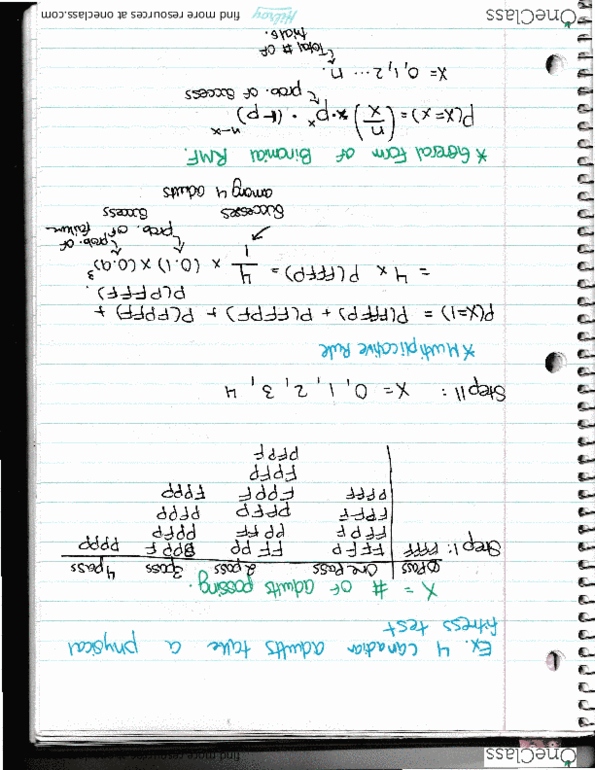 OneClass
find more resources at oneclass.com
Ex. 4 canadian adults take a physical
fitness test
X = # of adults passing.
0 pass one pass 2 pass 3 pass 4 pass
Step 1: FFFF FFFP FF PP PPP F PPPP
FFPF PP FF PPFP
FPFF PFFP PFPP
PFFF FPPF FPPP
FPFP
PFPF
Step 11: X = 0, 1, 2, 3, 4
*Multiplicative Rule
P(X=1) = P(FFFP) + P(FFPF) + P(FPFF) +
P(PFFF).
= 4 x P(FFFP) = 4/1 x (0.1) x (0.9)³
successes prob. of success prob. of failure
among 4 adults
*General Form of Binomial PMF.
P(X=x) = (n/x) * p^x · (1-p)^n-x
prob. of success
X = 0, 1, 2 ... n.
Total # of
trials.
Hilroy
OneClass
find more resources at oneclass.com